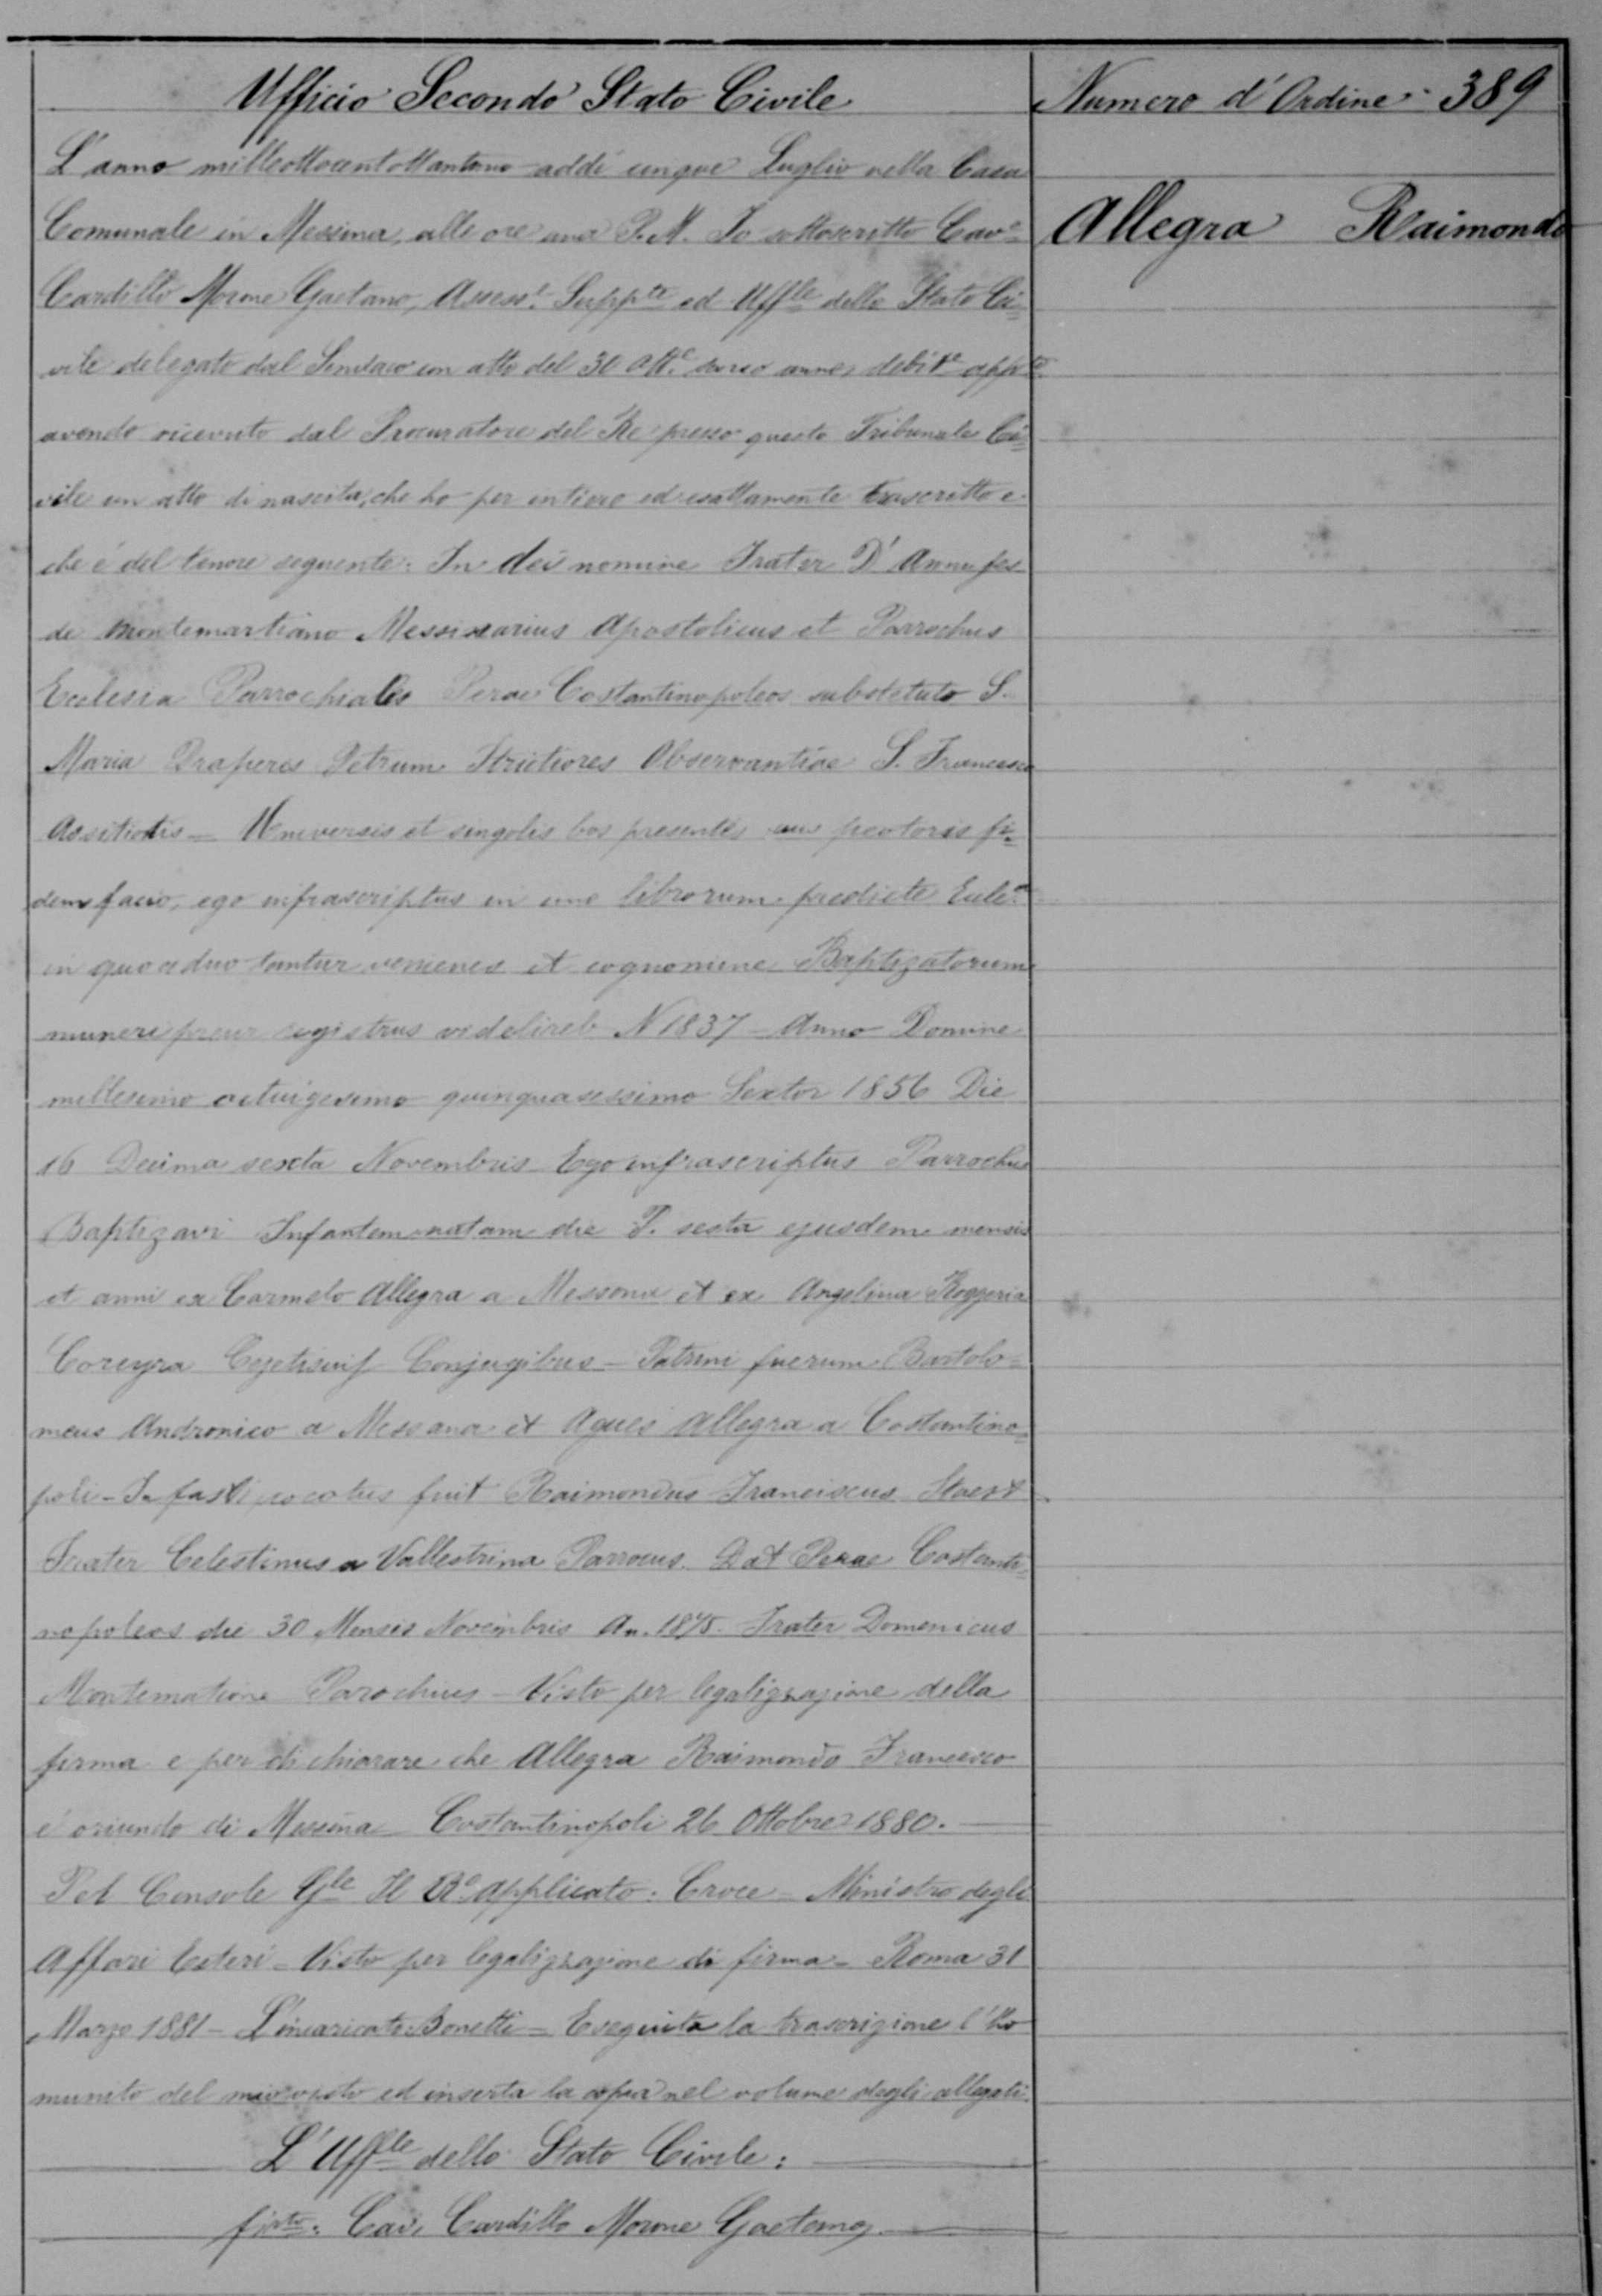 Ufficio Secondo Stato Civile
Numero d'Ordine 389
Allegra Raimondo
L'anno milleottocentottantuno addì cinque Luglio nella Casa
Comunale in Messina, alle ore una P.M. Io sottoscritto Cav.e
Cardillo Morone Gaetano, Assess.e Supp.te ed Uff.le dello Stato Ci=
vile delegato dal Sindaco con atto del 30 Ott.e scorso anno, debit.e app.to
avendo ricevuto dal Procuratore del Re presso questo Tribunale Ci=
vile un atto di nascita, che ho per intiero ed esattamente trascritto e
che è del tenore seguente: In dei nomine Frater D'
de Montemartiano Messinarius Apostolicus et Parrochus
Ecclesia Parrochialis Perae Costantinopoleos substetuto S.
Maria Draperis Petrum Strictiores Observantiae S. Francesco
Assitiotis = Universis et singolis has presentes pectoris fi=
dem facio, ego infrascriptus in uno librorum predicte
in quo et cognomine Baptizatorum
registrus N 1837 - Anno Domine
millesimo octuigesimo quinquasessimo Sexto 1856 Die
16 Decima sexta Novembris Ego infrascriptus Parrochus
Baptizavi Infantem natam die P. sesta ejusdem mensis
et anni ex Carmelo Allegra a Messana et ex Angelina Roggeria
Coreyra Conjugibus - Patrini fuerum Bartolo=
meus Andronico a Messana et Agnes Allegra a Costantino=
poli - fuit Raimondus Franciscus
Frater Celestinus a Vallestrina Parrocus. Dat Perae Costanti=
nopoleos die 30 Mensis Novembris An. 1875. Frater Domenicus
Montematione Parochius - Visto per legalizzazione della
firma e per dichiarare che Allegra Raimondo Francesco
è oriundo di Messina Costantinopoli 26 Ottobre 1880.
Pel Console G.le Il R.o applicato: Croce = Ministro degli
Affari Esteri = Visto per legalizzazione di firma = Roma 31
Marzo 1881 - L'incaricato Bonetti = Eseguita la trascrizione l'ho
munito del mio visto ed inserta la copia nel volume degli allegati.
L'Uff.le dello Stato Civile:
fir.to: Cav. Cardillo Morone Gaetano